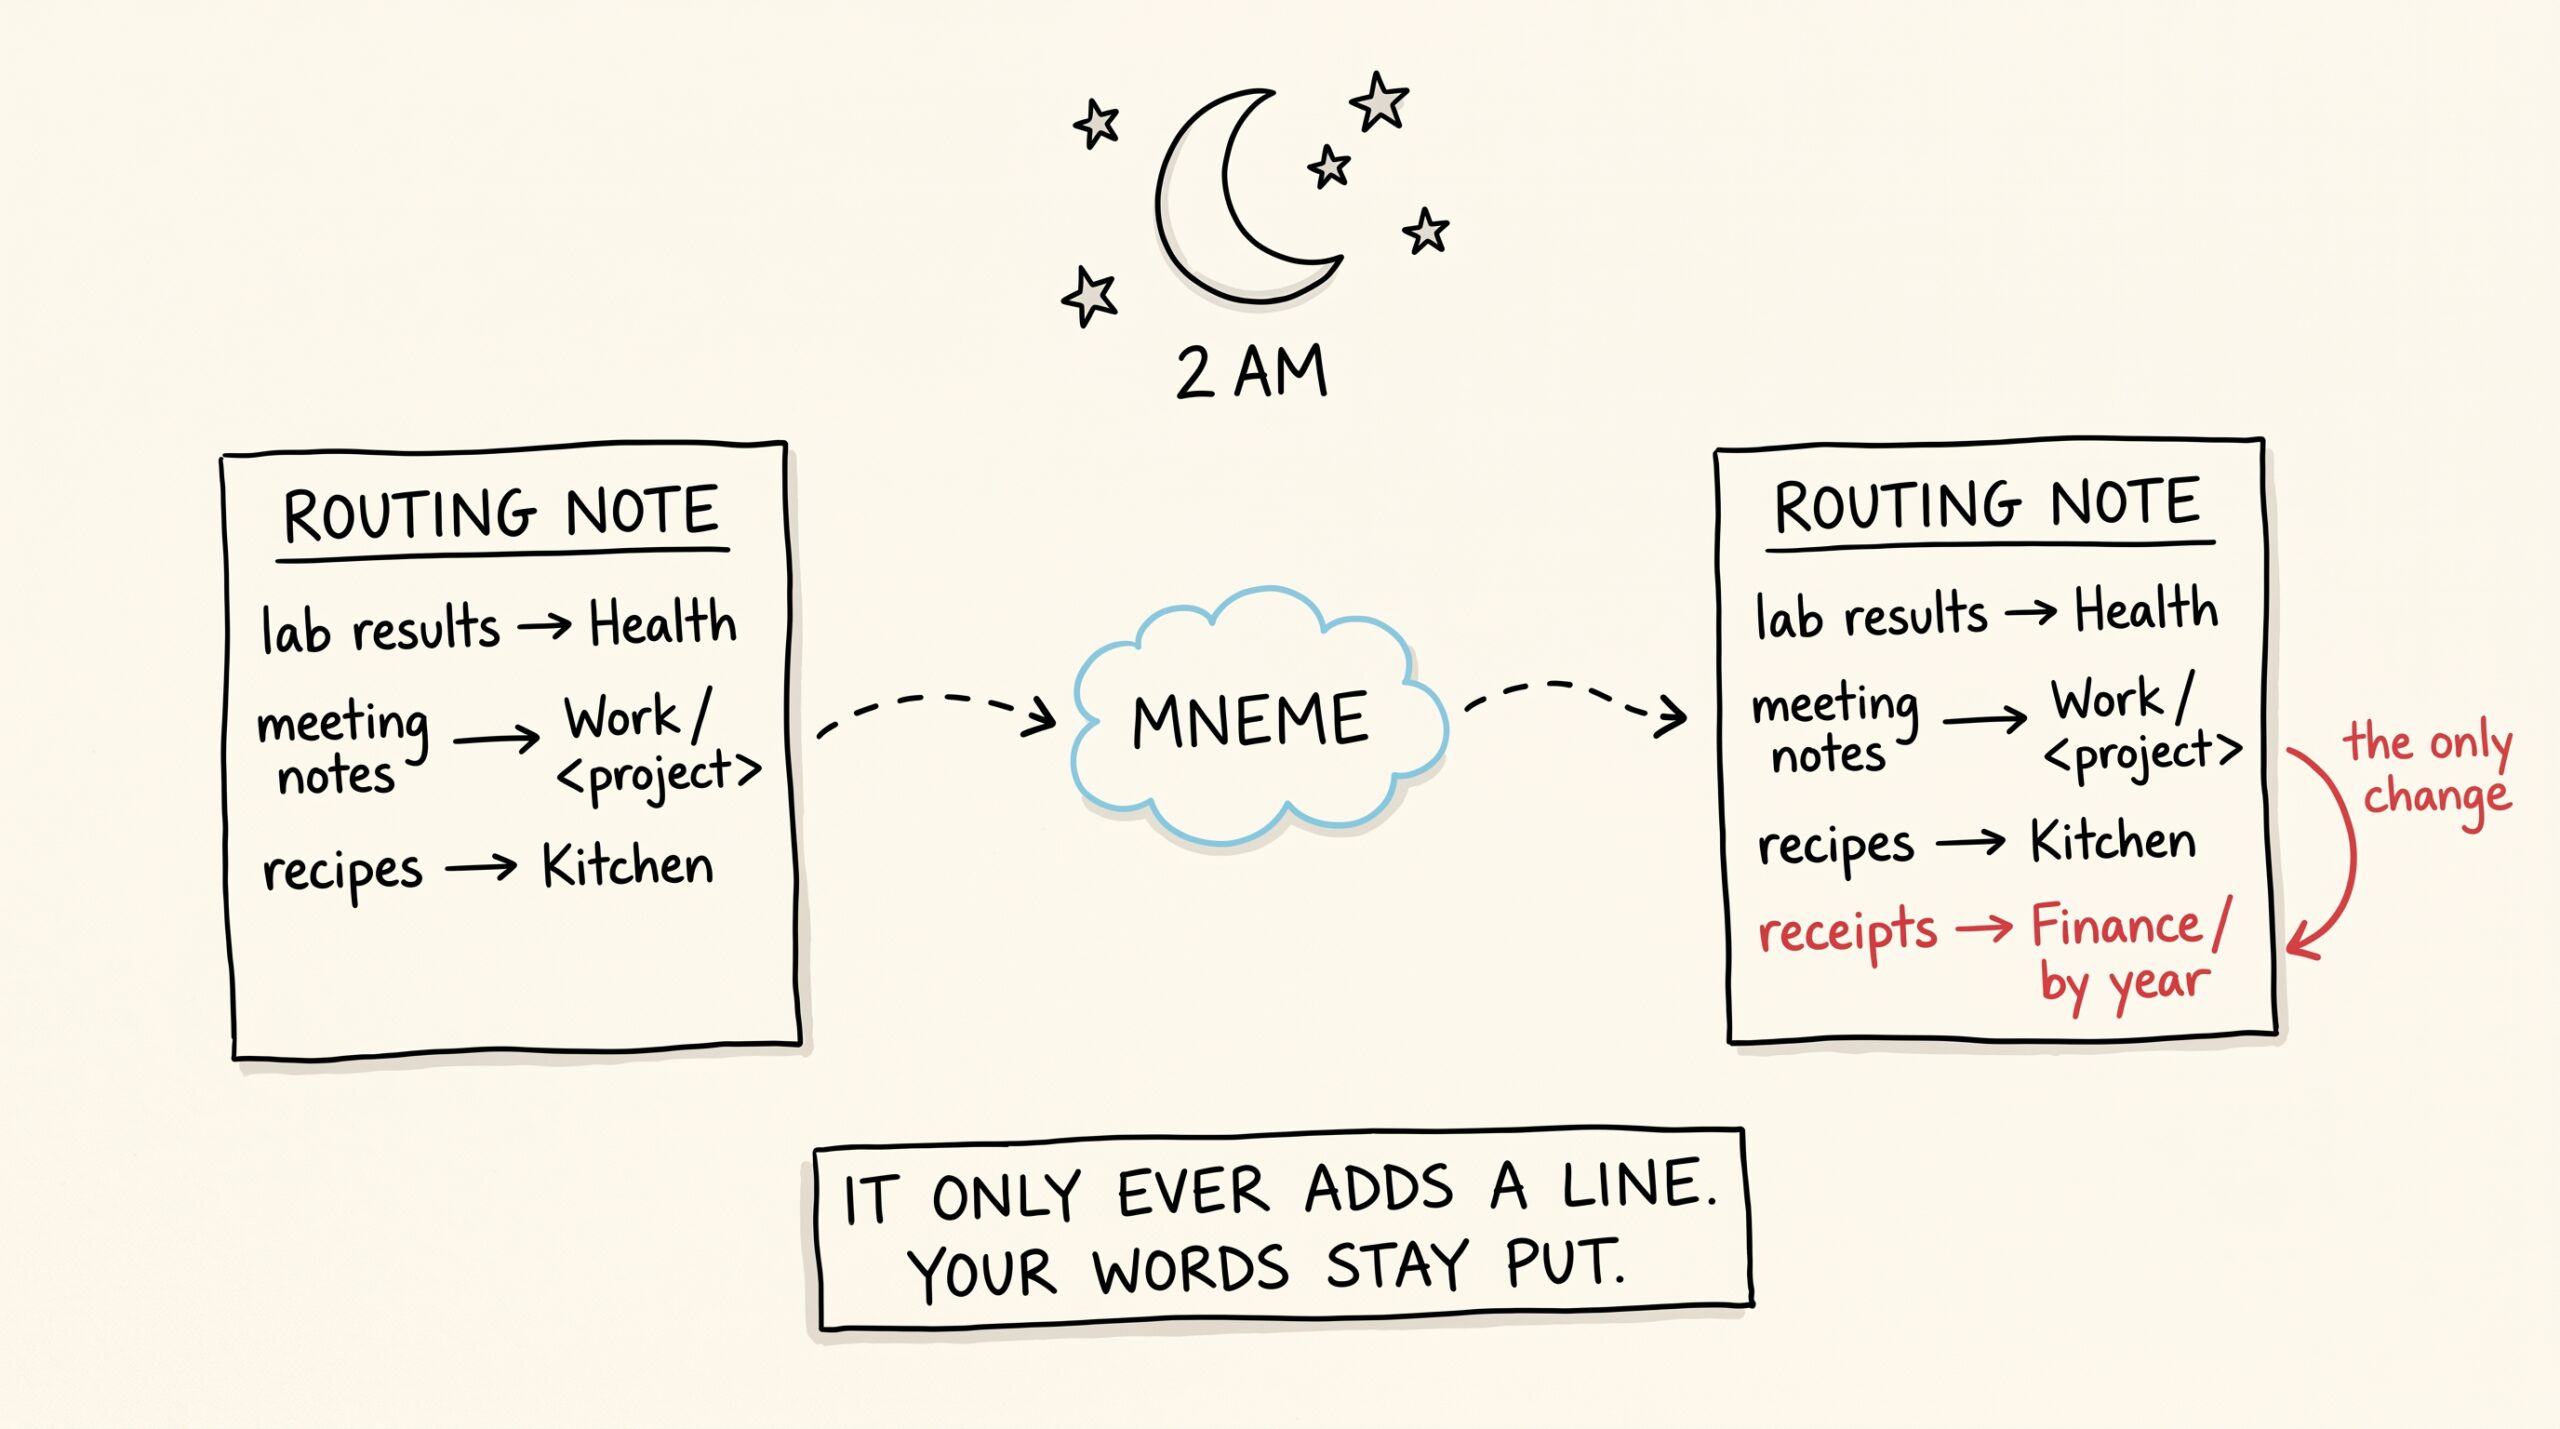 2 AM
ROUTING NOTE
lab results → Health
meeting notes → Work/
<project>
recipes → Kitchen
MNEME
ROUTING NOTE
lab results → Health
meeting notes → Work/
<project>
recipes → Kitchen
receipts → Finance/
by year
the only
change
IT ONLY EVER ADDS A LINE.
YOUR WORDS STAY PUT.